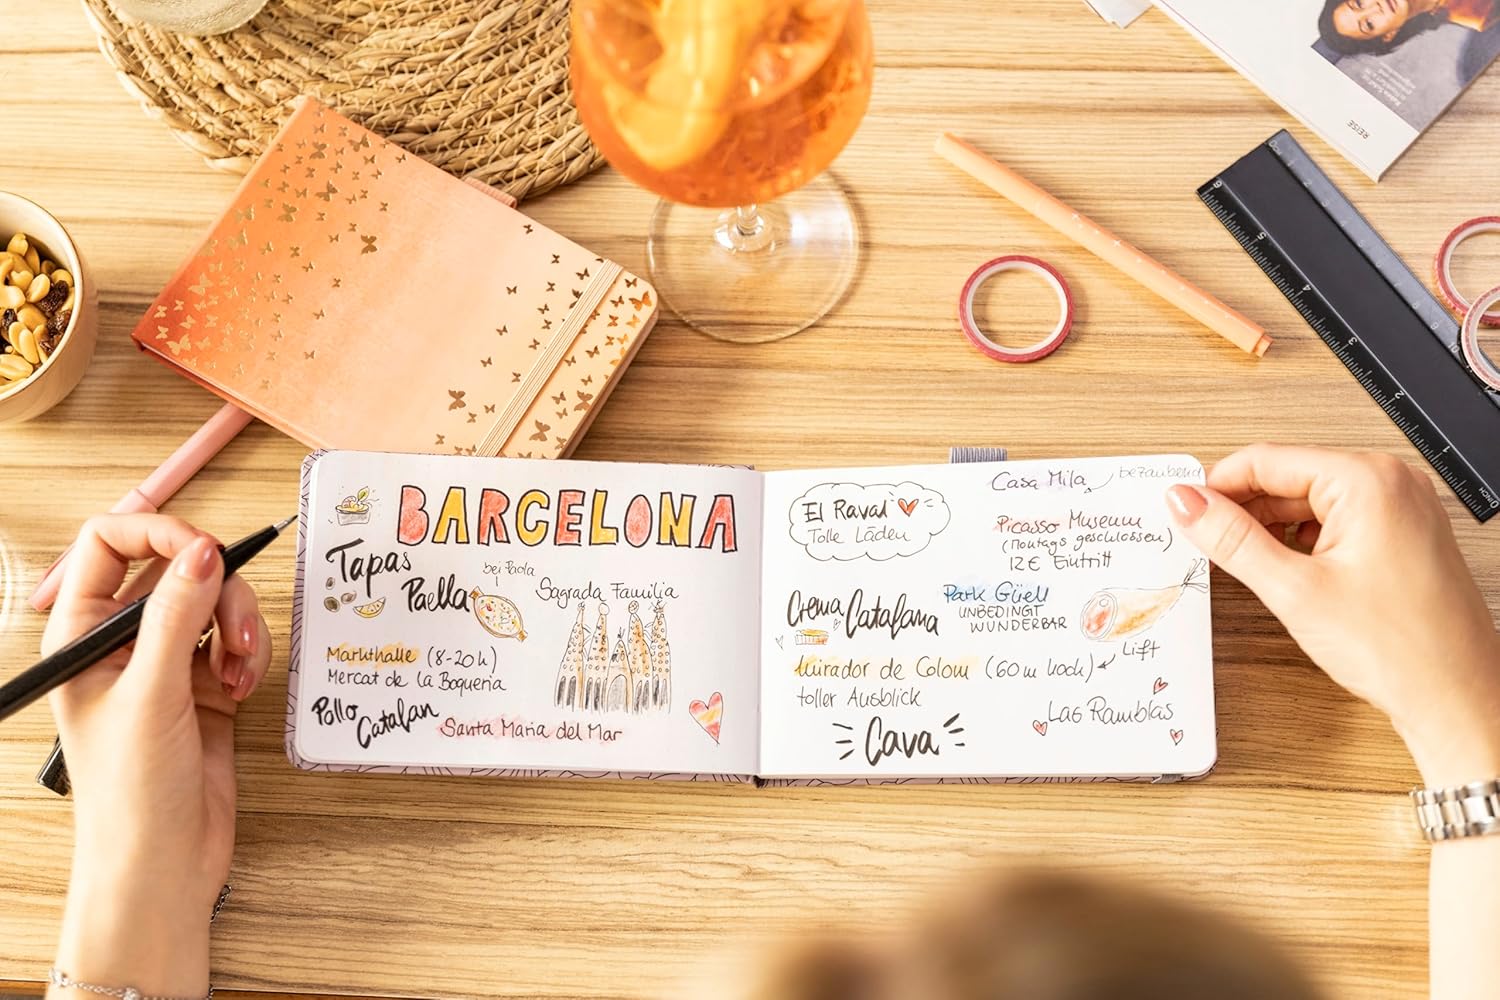 BARCELONA
Tapas
Paella
bei Paola
Sagrada Familia
Markthalle (8-20h)
Mercat de la Boqueria
Pollo
Catalan
Santa Maria del Mar
El Raval
Tolle Läden
Casa Mila
bezaubernd
Picasso Museum
(Montags geschlossen)
12€ Eintritt
Crema
Catalana
Park Güell
UNBEDINGT
WUNDERBAR
Mirador de Colom (60m hoch)
Lift
toller Ausblick
Las Ramblas
Cava
REISE
6
5
4
3
2
1
0
INCH